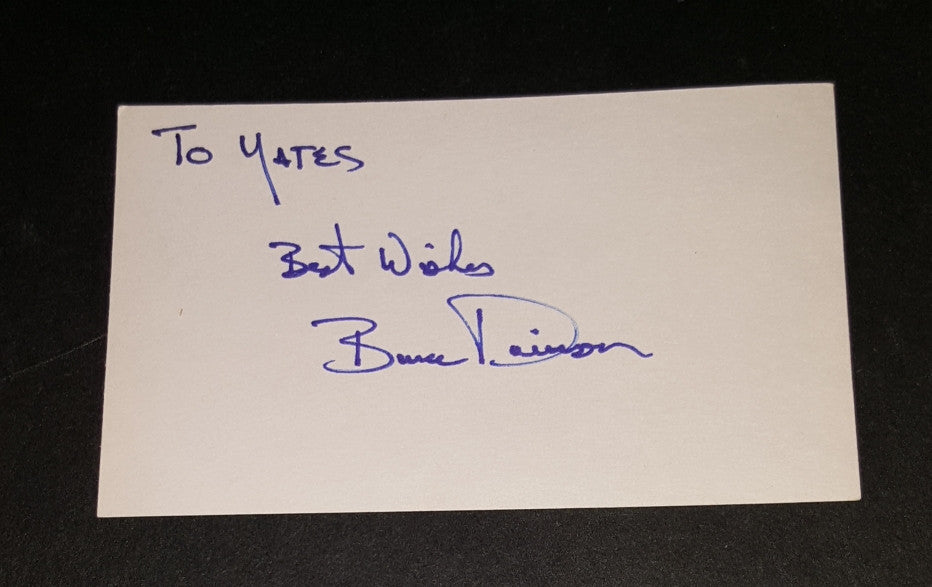 To YATES
Best Wishes
Bruce